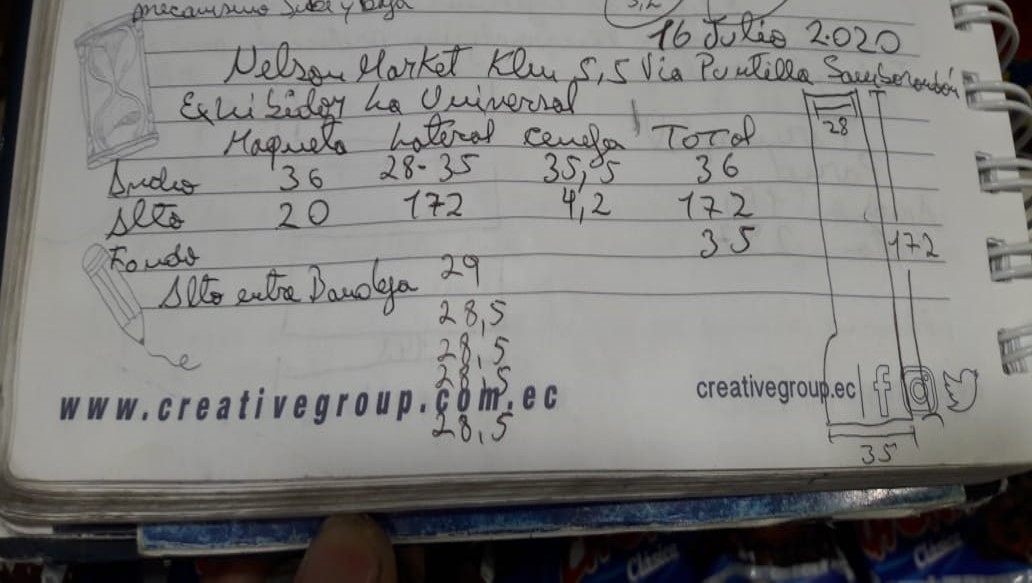 mecanismo Sube y baja
3,2
16 Julio 2.020
Nelson Market Klm 5,5 Via Puntilla Samborondón
Exhibidor La Universal
Maqueta Lateral Cenefa Total
Ancho 36 28-35 35,5 36
Alto 20 172 4,2 172
Fondo 35
Alto entre Bandeja 29
28,5
28,5
28,5
28,5
28
172
35
www.creativegroup.com.ec
creativegroup.ec
Clásica